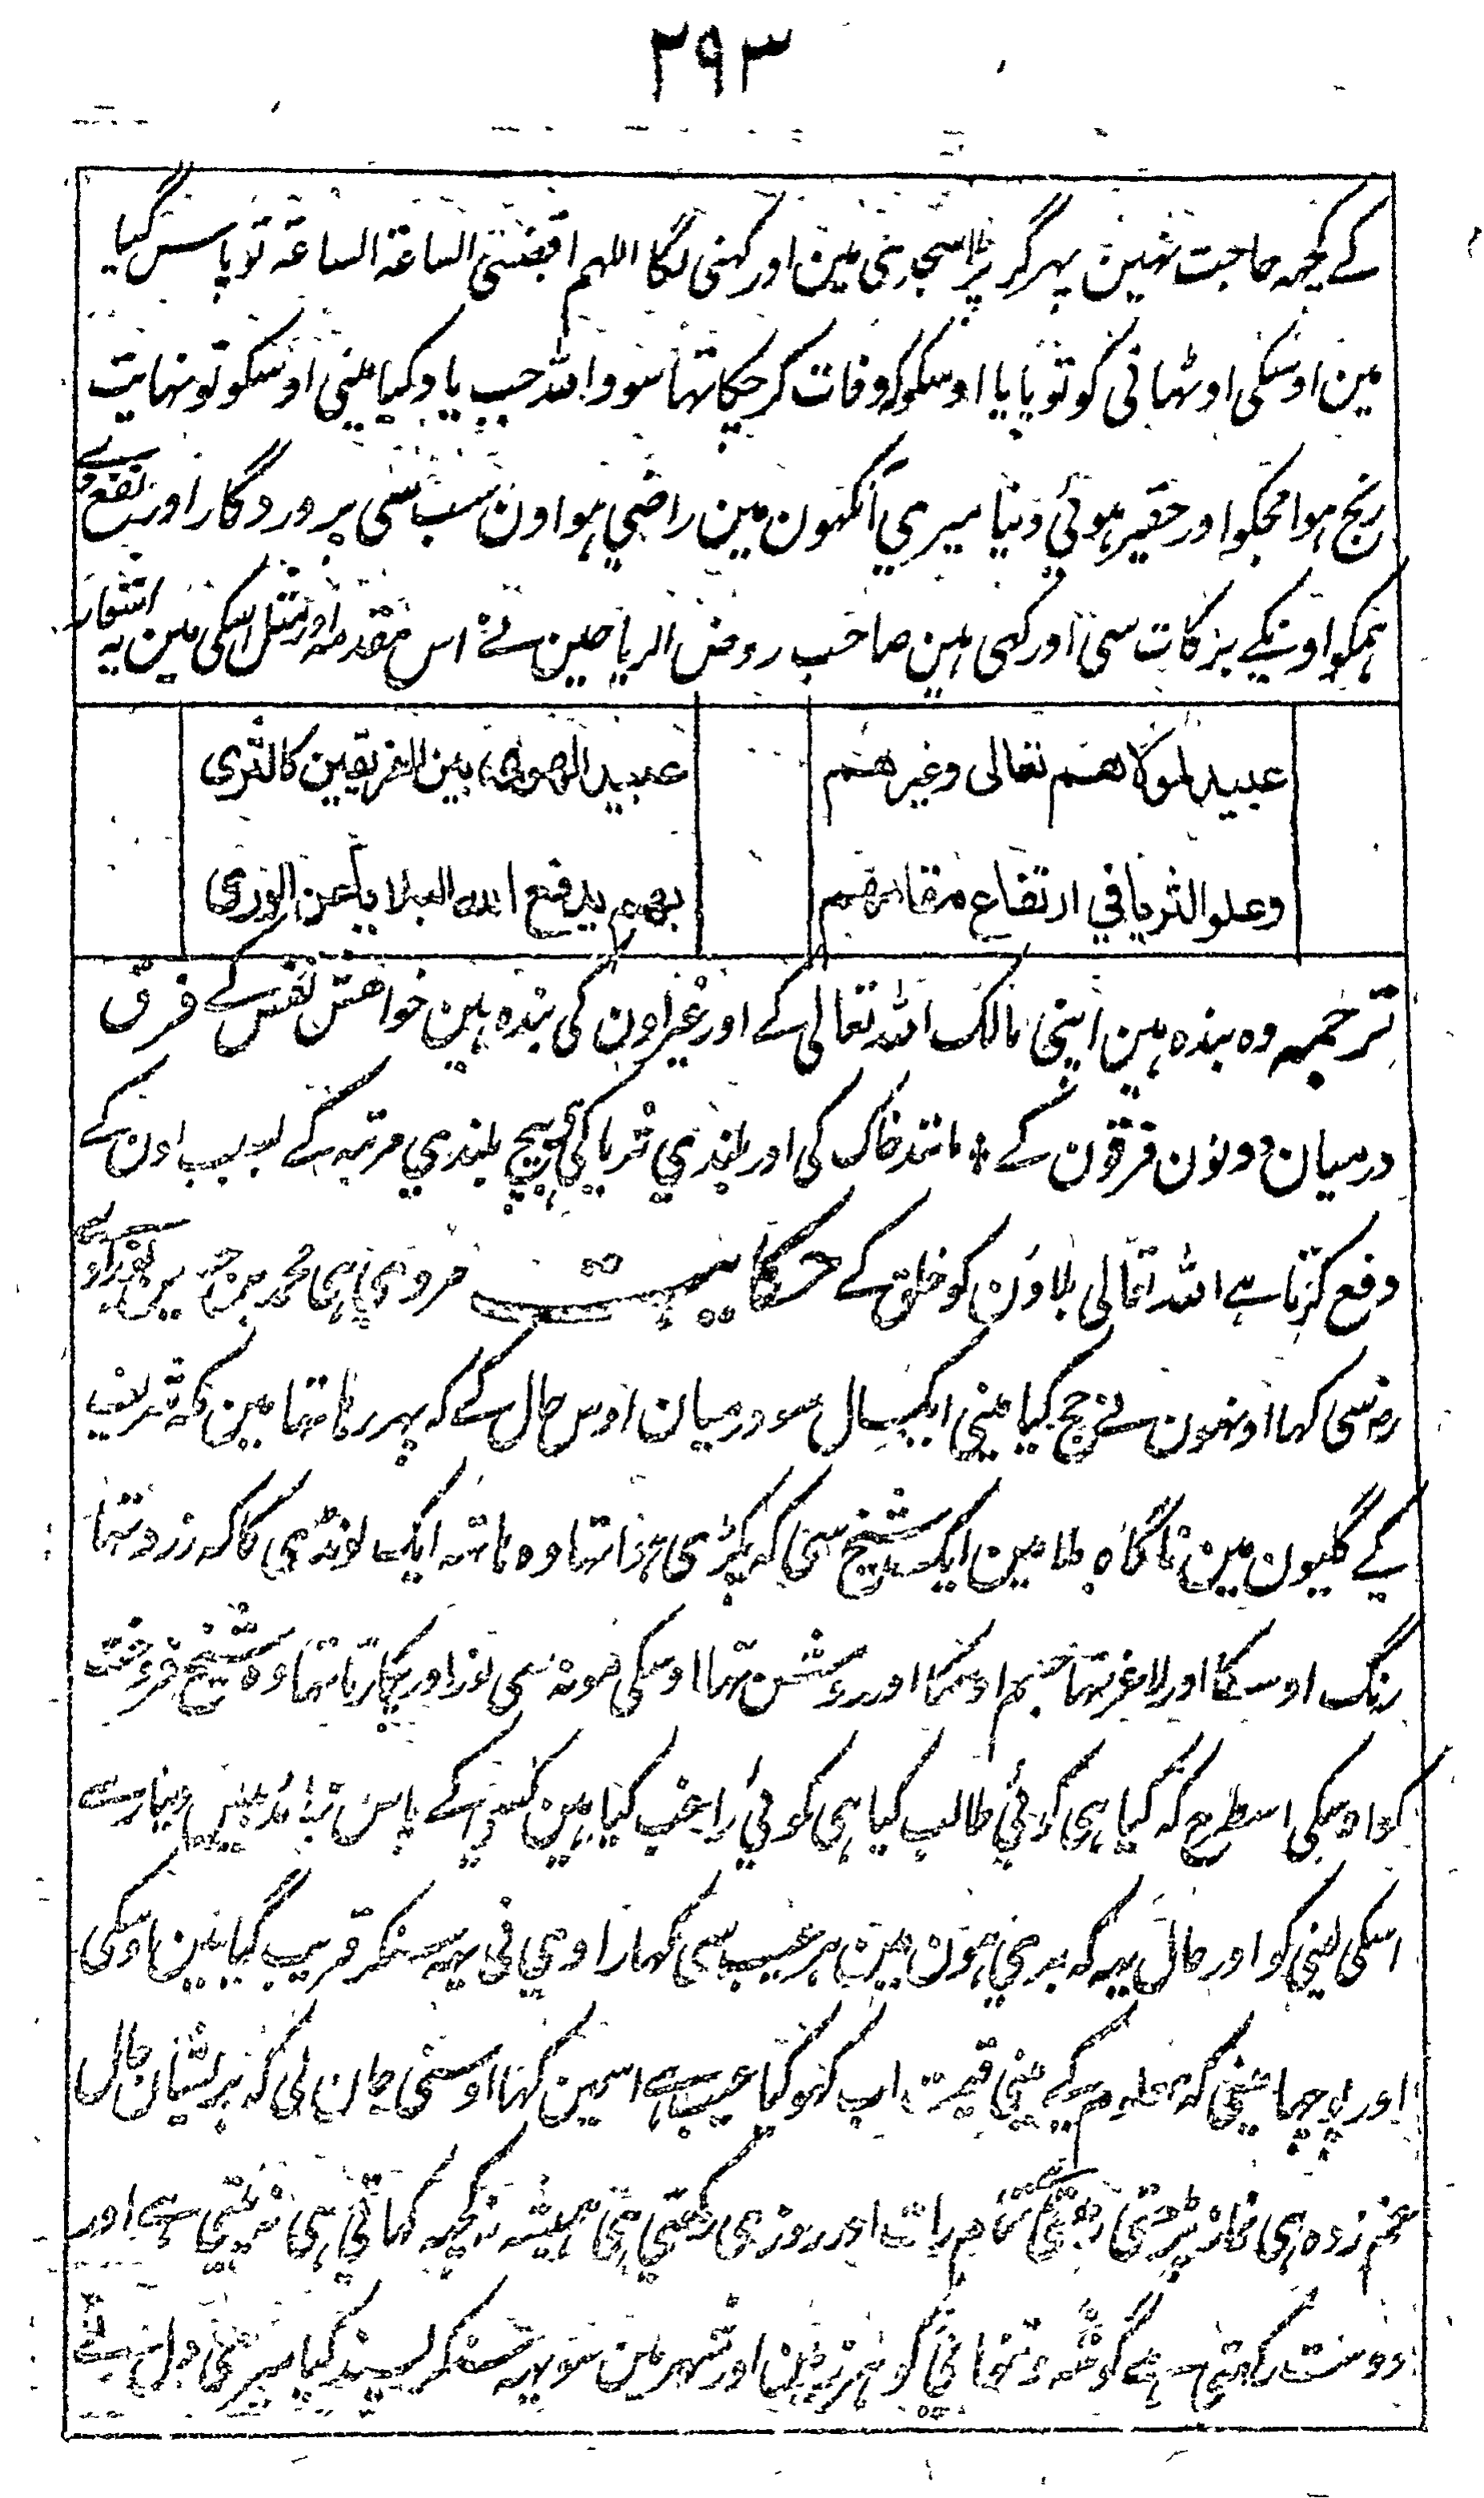 ٢٩٣
کے کچہہ حاجت نہین پہر گر پڑا سجدی مین اور کہنی لگا اللہم اقبضنی الساعۃ الساعۃ تو پاس گیا
مین اوسکی اوٹہانی کو تو پایا اوسکو کہ وفات کر چکا تہا سو واللہ جب یاد کیا مینی اوسکو تو نہایت
رنج ہوا مجکو اور حقیر ہوئی دنیا میری آنکہون مین راضی ہو اون سب سی پروردگار اور نفع دے
ہمکو اونکے برکات سی اور کہی ہین صاحب روض الریاحین نے اس مقدمہ اور مثل اسکی مین یہ اشعار
عبید لمولاهم تعالى وغيرهم
عبيد الهوى بين الفريقين كالثرى
وعلو الثريا في ارتفاع مقامهم
بهم يدفع الله البلايا عن الورى
ترجمہ وہ بندہ ہین اپنی مالک اللہ تعالی کے اور غیر اون کی بندہ ہین خواہش نفس کے فرق
درمیان دونون فرقون کے مانند خاک کی اور بلندی ثریا کی ہی بیچ بلندی مرتبہ کے بسبب اون کے
دفع کرتا ہے اللہ تعالی بلاؤن کو خلق کے حکایت مروی ہی محمد بن حسین بغدادی
رہ سی کہا اونہون نے حج کیا مینی ایکسال سو درمیان اوس حال کے کہ پہر رہا تہا مین مکہ شریف
کے گلیون مین ناگاہ ملا مین ایک شیخ سی کہ پکڑی ہوا تہا وہ ہاتہ ایک لونڈی کا کہ زرد تہا
رنگ اوسکا اور لاغر تہا جسم اوسکا اور روشن تہا اوسکی مونہ سی نور اور پکارتا تہا وہ شیخ فروخت
کو اوسکی اسطرح کہ کیا ہی کوئی طالب کیا ہی کوئی راغب کیا ہین کسی کے پاس زیادہ بیس دینار سے
اسکی لینی کو اور حال یہہ کہ بری ہون مین ہر عیب سی کہا راوی نی یہہ سنکر قریب گیا مین اوسکی
اور پوچہا مینی کہ معلوم کے مینی قیمت اب کہو کیا عیب ہے اسمین کہا اوسنی جان لی کہ پریشان حال
غم زدہ ہی نماز پڑہتی رہتی تمام رات اور روزی رکہتی ہی ہمیشہ نہ کچہہ کہاتی ہی نہ پیتی ہی اور
دوست رکہتی ہے گوشہ و تنہائی کو ہر زمین اور شہر مین سو یہہ سنکر پسند کیا میری دل نے